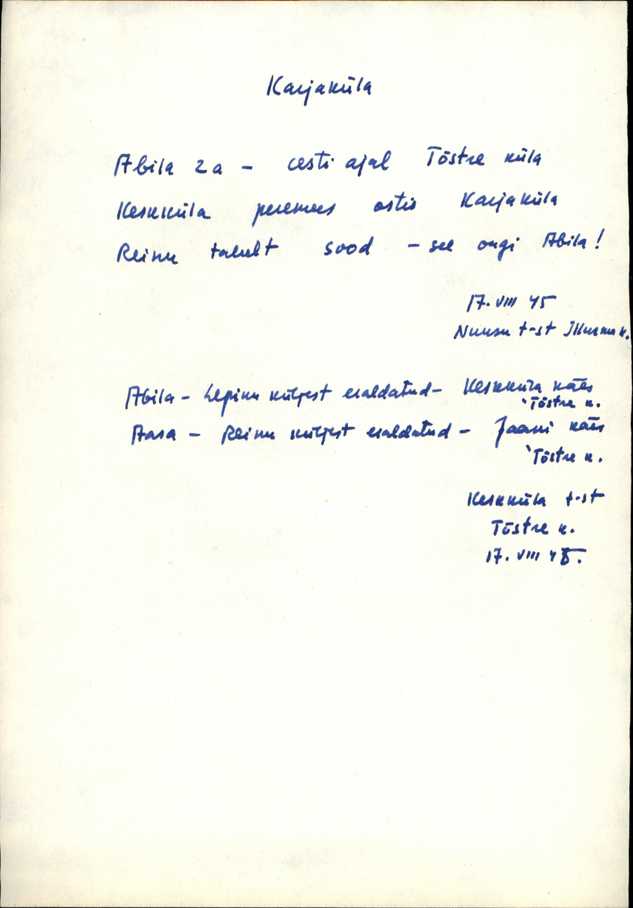 Karjaküla
Abila 2a – eesti ajal Tõstre küla
Keskküla peremees ostis Karjaküla
Reinu talult sood – see ongi Abila!
17. VIII 45
Nuursu t-st
Abila – Lepiku küljest eraldatud – Keskküla käes
'Tõstre k.
Aasa – Reinu küljest eraldatud – Jaani käes
'Tõstre k.
Keskküla t-st
Tõstre k.
17. VIII 45.